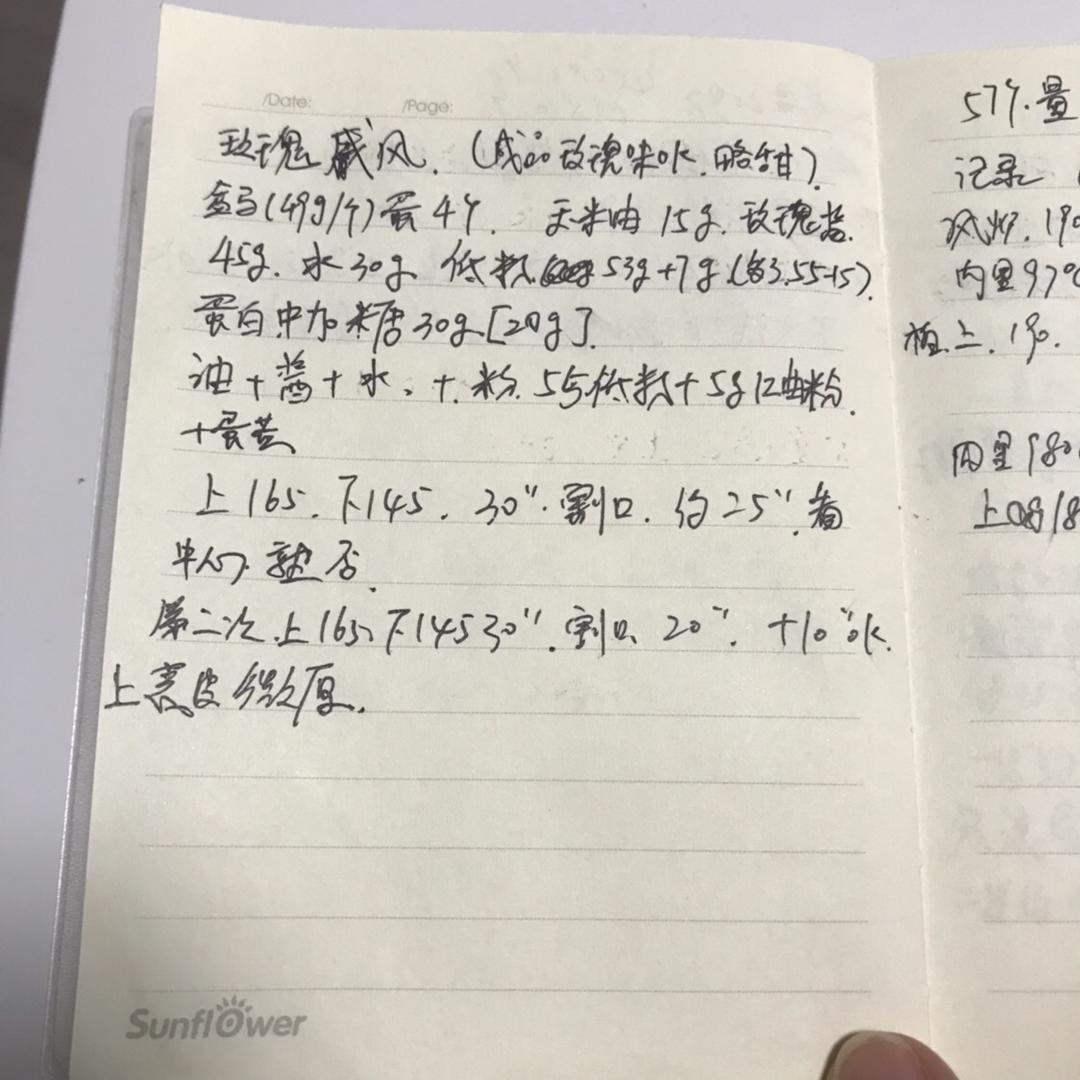 /Date: /Page:
玫瑰戚风.(成品玫瑰味ok.略甜).
盒马(49g/个)蛋4个. 玉米油15g.玫瑰酱.
45g.水30g.低粉53g+7g
蛋白中加糖30g[20g].
油+酱+水.+.粉.55低粉+5g红曲粉.
+蛋黄
上165.下145.30".割口.约25".看
中心熟否.
第二次.上165、下145 30".割口.20".+10"ok.
上表皮微厚.
Sunflower
57个.量
记录
风炉.190
内里97°C
植上.190.
内里980
上08/8